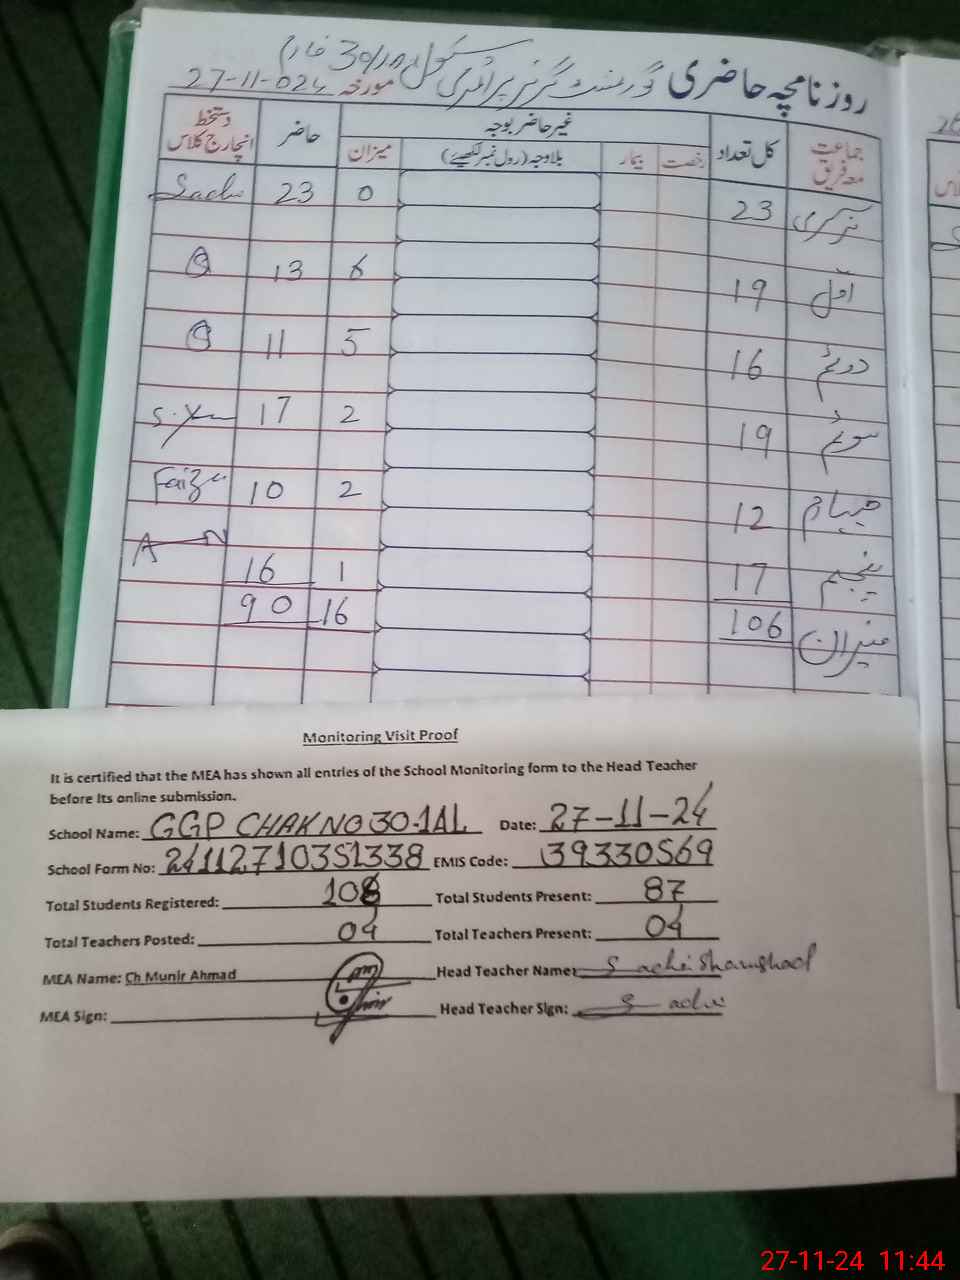 روزنامچہ حاضری گورنمنٹ گرلز پرائمری سکول 30/ مورخہ 27-11-024
جماعت معہ فریق کل تعداد غیر حاضر بوجہ حاضر دستخط انچارج کلاس
رخصت بیمار بلاوجہ (رول نمبر لکھیئے) میزان
23 0 23
اول 19 6 13
دوئم 16 5 11
سوئم 19 2 17
چہارم 12 2 10 Faiza
پنجم 17 1 16
میزان 106 16 90
Monitoring Visit Proof
It is certified that the MEA has shown all entries of the School Monitoring form to the Head Teacher
before Its online submission.
School Name: GGP CHAK NO 30-1AL Date: 27-11-24
School Form No: 24112710351338 EMIS Code: 39330569
Total Students Registered: 108 Total Students Present: 87
Total Teachers Posted: 04 Total Teachers Present: 04
MEA Name: Ch Munir Ahmad Head Teacher Name:
MEA Sign: Head Teacher Sign:
27-11-24 11:44